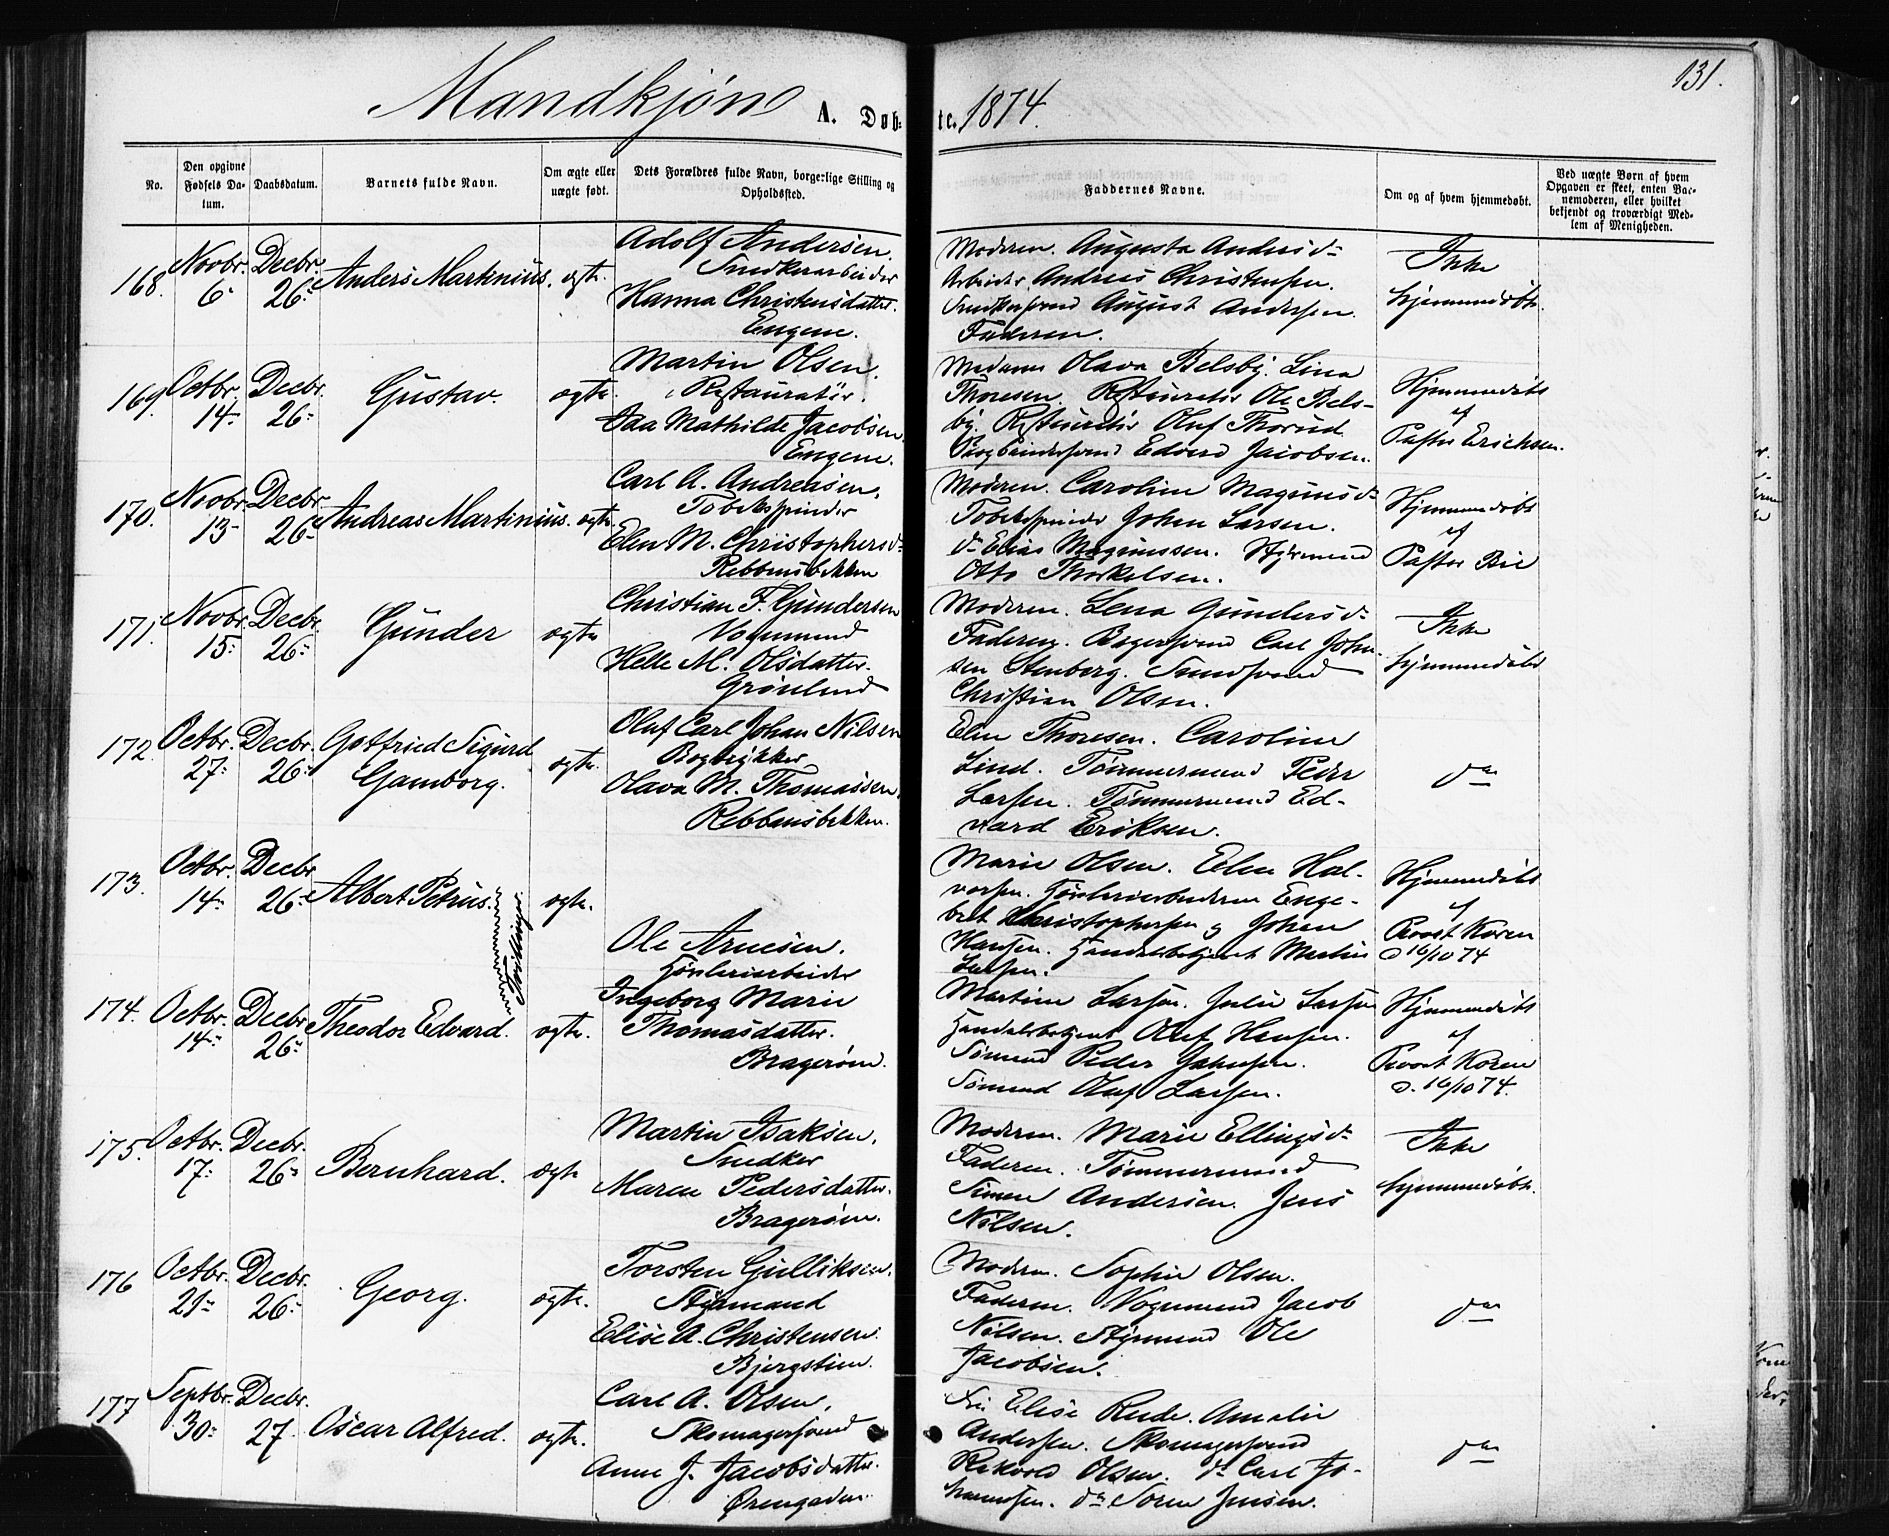 Mandkjøn A. Døb- te. 1874.
131.
No.
Den opgivne Fødsels Datum.
Daabsdatum.
Barnets fulde Navn.
Om ægte eller uægte født.
Dets Forældres fulde Navn, borgerlige Stilling og Opholdssted.
Faddernes Navne.
Om og af hvem hjemmedøbt.
Ved uægte Børn af hvem
Opgaven er skeet, enten Bar-
nemoderen, eller hvilket
bekjendt og troværdigt Med-
lem af Menigheden.
168. Novbr. 6 Decbr. 26 Anders Martinius. ægte.
Adolf Andersen.
Snedkerarbeider
Hanna Christensdatter.
Engene.
Moderen. Augusta Andersd
Arbeider Andreas Christensen.
Snedkersvend August Andersen.
Faderen.
Ikke
hjemmedøbt.
169. Octbr. 14. Decbr. 26 Gustav. ægte.
Martin Olsen.
Restauratør.
Ida Mathilde Jacobsen.
Engene.
Madame Olava Belsby. Lina
Thoresen. Restauratør Ole Bels-
by. Restauratør Oluf Thorud.
Bogbindersvend Edvard Jacobsen.
Hjemmedøbt
af
Pastor Erichsen.
170. Novbr. 13 Decbr. 26 Andreas Martinius. ægte.
Carl A. Andreasen.
Tobakspinder
Elen M. Christophersd
Rebbensbekken
Moderen. Caroline Magnusd
Tobakspinder Johan Larsen.
do Elias Magnussen. Styrmand
Otto Thorkelsen.
Hjemmedøbt
af
Pastor Bie
171. Novbr. 15 Decbr. 26 Gunder ægte
Christian F. Gundersen
Vognmand
Helle M. Olsdatter.
Grønland
Moderen. Lena Gundersd
Faderen. Bagersvend Carl Johan-
sen Stenberg. Smedsvend
Christian Olsen.
Ikke
hjemmedøbt
172. Octbr. 27 Decbr. 26 Gotfried Sigurd
Gamborg. ægte.
Oluf Carl Johan Nilsen
Bogtrykker
Olava M. Thomassen.
Rebbensbekken.
Elen Thoresen. Caroline
Lind. Tømmermand Peder
Larsen. Tømmermand Ed-
vard Eriksen.
do
173. Octbr. 14 Decbr. 26 Albert Petrus. ægte.
Tvillinger
Ole Arnesen.
Ingeborg Marie
Thomasdatter.
Bragerøen.
Marie Olsen. Elen Hal-
vorsen. Enge-
bret Christophersen og Johan
Hansen. Handelsbetjent Martin
Larsen.
Hjemmedøbt
af
Provst Koren
d 16/10 74
174. Octbr. 14 Decbr. 26 Theodor Edvard. ægte.
Martine Larsen. Julie Larsen
Handelsbetjent Oluf Hansen.
Sømand Peder Johnsen.
Sømand Oluf Larsen.
Hjemmedøbt
af
Provst Koren
d. 16/10 74.
175. Octbr. 17 Decbr. 26 Bernhard. ægte
Martin Isaksen.
Snedker
Maren Pedersdatter.
Bragerøen.
Moderen. Marie Ellingsd
Faderen. Tømmermand
Simen Andersen. Jens
Nilsen.
Ikke
hjemmedøbt.
176 Octbr. 21 Decbr. 26 Georg. ægte.
Torsten Gulliksen.
Styrmand
Elise A. Christensen.
Bjergstien.
Moderen. Sophie Olsen.
Faderen. Vognmand Jacob
Nilsen. Styrmand Ole
Jacobsen.
do
177 Septbr. 30 Decbr. 27 Oscar Alfred. ægte.
Carl A. Olsen.
Skomagersvend
Anne J. Jacobsdatter.
Ørengaden
Fru Elise Rude. Amalie
Andersen. Skomagersvend
Olsen. do Carl Jo-
hannesen. do Søren Jensen.
do